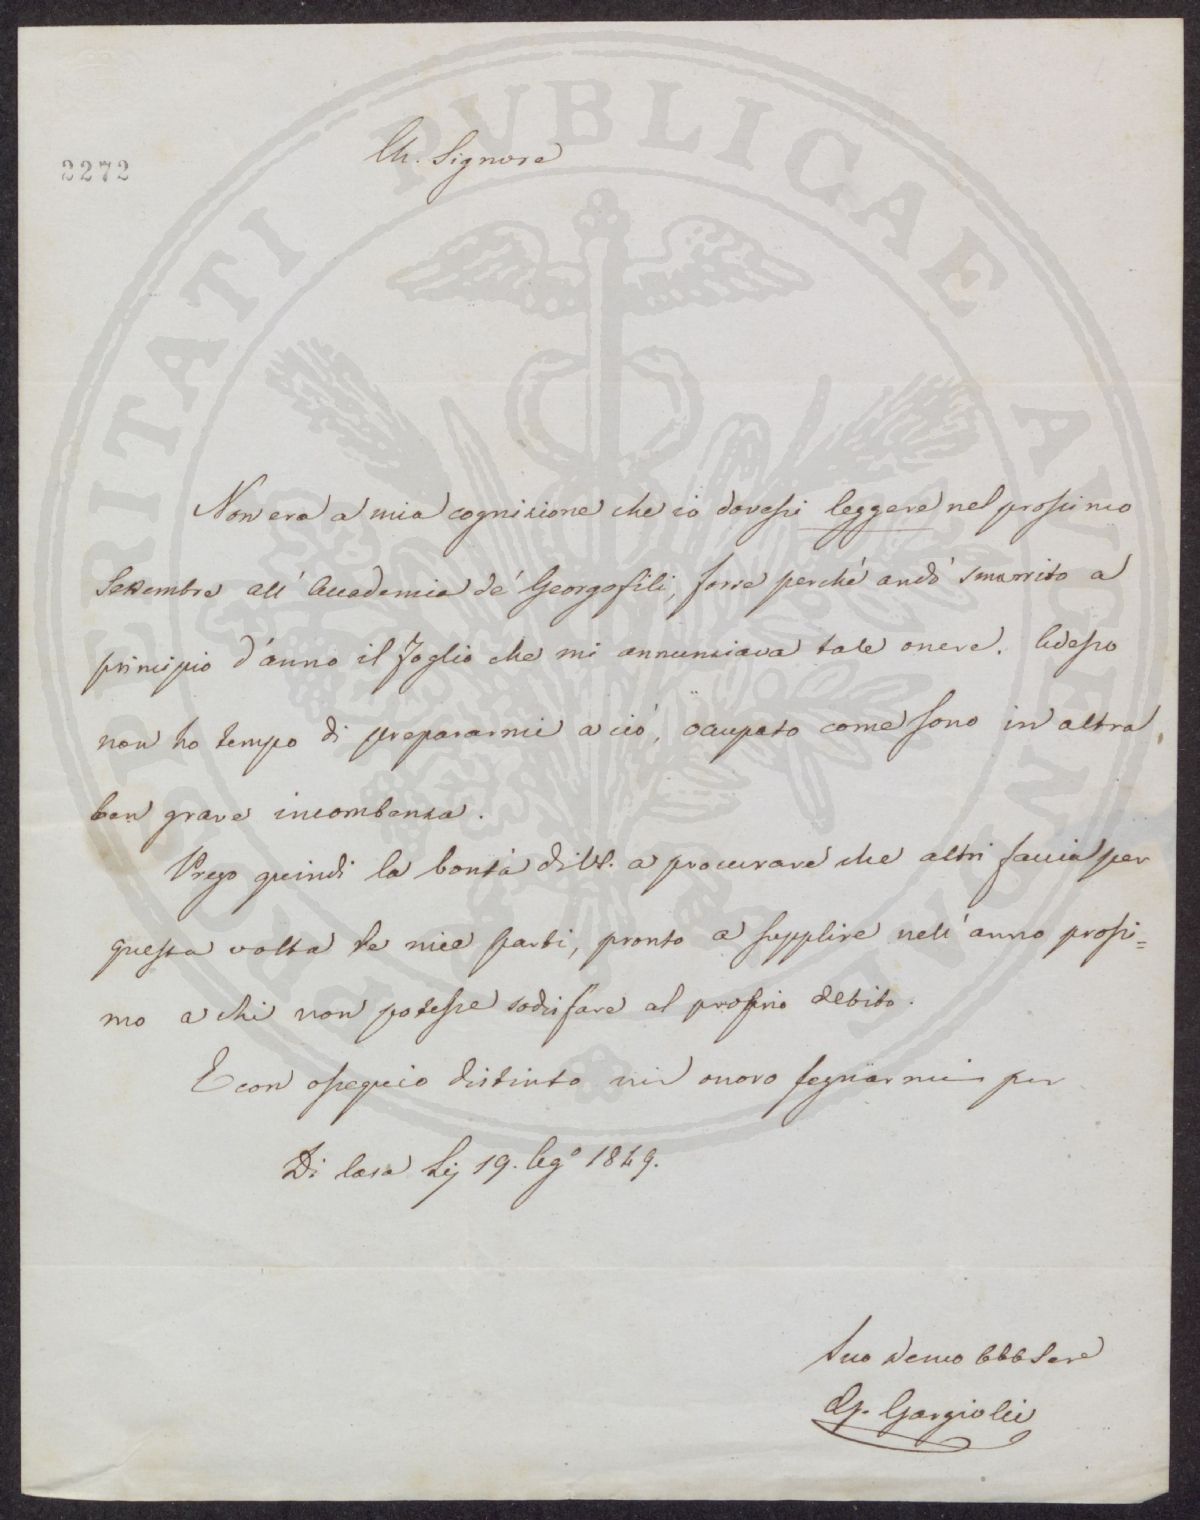 PROSPERITATI PUBLICAE AUGENDAE
2272
Ch. Signore
Non era a mia cognizione che io dovessi leggere nel prossimo
Settembre all' Accademia de' Georgofili, forse perchè andò smarrito a
principio d'anno il foglio che mi annunziava tale onere. Adesso
non ho tempo di prepararmi a ciò, occupato come sono in altra
ben grave incombenza.
Prego quindi la bontà di V.S. a procurare che altri faccia per
questa volta le mie parti, pronto a supplire nell' anno prossi=
mo a chi non potesse sodisfare al proprio debito.
E con ossequio distinto mi onoro segnarmi per
Di Casa li 19. Ag.º 1849.
Suo Devmo Obb Serv
G. Gargiolli